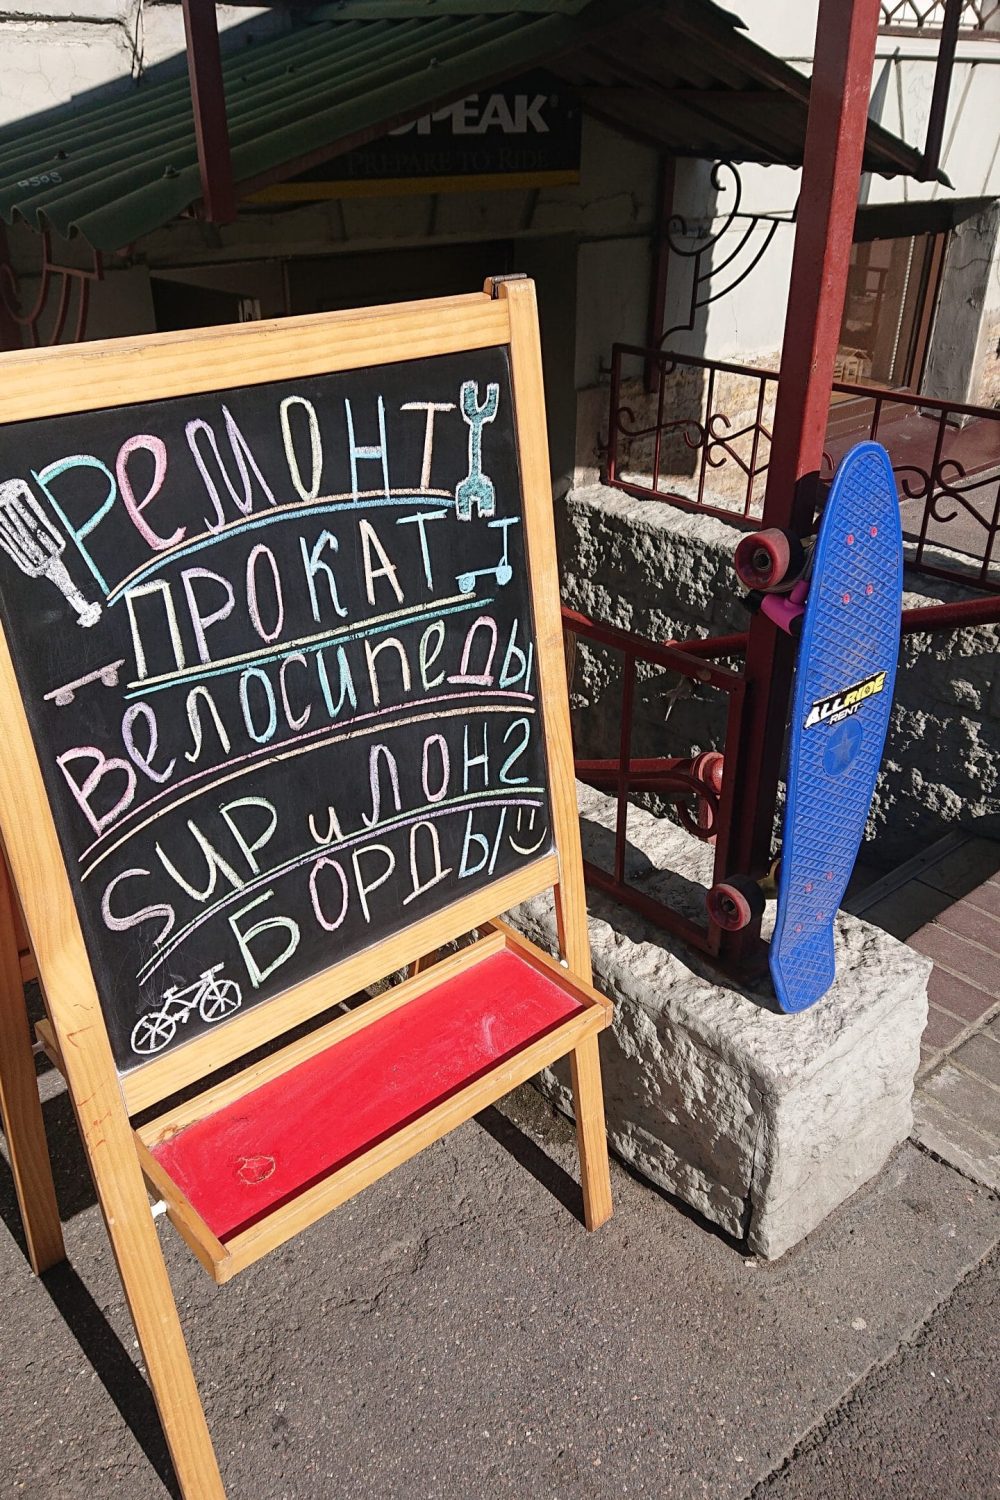 PEAK
PREPARE TO RIDE
Ремонт
ПРОКАТ
Велосипеды
SUP и ЛОНГ
БОРДЫ
ALLRIDE
RENT